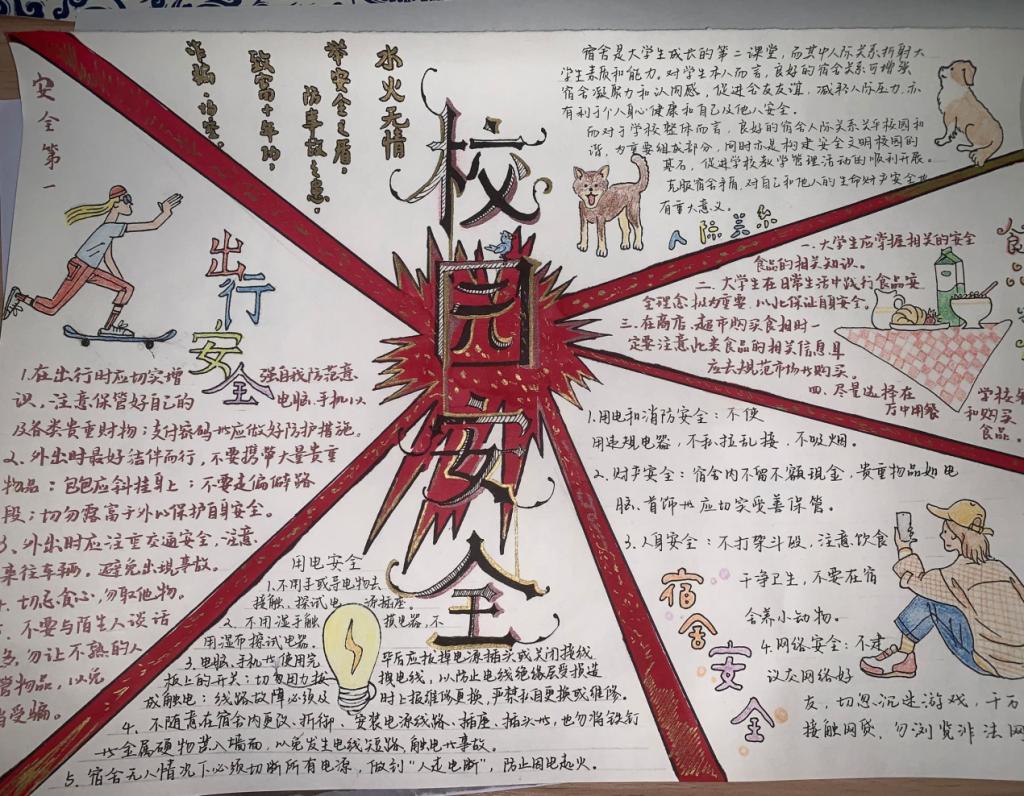 安全第一
水火无情
居安
防事故之患,
致富千年功,
校园安全
出行安全
1.在出行时应切实增强自我防范意
识。注意保管好自己的电脑、手机以
及各类贵重财物;支付密码也应做好防护措施。
2、外出时最好结伴而行,不要携带大量贵重
物品:包包应斜挂身上:不要走偏僻路
段;切勿露富于外以保护自身安全。
3、外出时应注重交通安全,注意
来往车辆,避免出现事故。
4.切忌贪心,勿取他物。
不要与陌生人谈话
多,勿让不熟的人
管物品,以免
受骗。
宿舍是大学生成长的第二课堂,而其中人际关系折射大
学生素质和能力,对学生本人而言,良好的宿舍关系可增强
宿舍凝聚力和认同感,促进舍友友谊,减轻人际压力,亦
有利于个人身心健康和自己及他人安全。
而对于学校整体而言,良好的宿舍人际关系关乎校园和
谐,为重要组成部分,同时亦是构建安全文明校园的
基石,促进学校教学管理活动的顺利开展。
克服宿舍矛盾,对自己和他人的生命财产安全
有重大意义。
人际关系
食
一.大学生应掌握相关的安全
食品的相关知识。
二.大学生在日常生活中践行食品安
全理念极为重要,以此保证自身安全。
三.在商店、超市购买食物时一
定要注意此类食品的相关信息且
应去规范市场购买。
四.尽量选择在学校
厅中用餐和购买
食品。
宿舍安全
1.用电和消防安全:不使
用违规电器,不私拉乱接,不吸烟。
2.财产安全:宿舍内不留不额现金,贵重物品如电
脑、首饰也应切实妥善保管。
3.人身安全:不打架斗殴,注意饮食
干净卫生,不要在宿
舍养小动物。
4.网络安全:不建
议友网络好
友,切忌沉迷游戏,千万
接触网贷,勿浏览非法网
用电安全
1.不用手或导电物去
接触、探试电源插座。
2.不用湿手触摸电器,不
用湿布擦试电器。
3.电脑、手机也使用完毕后应拔掉电源插头或关闭接线
板上的开关:切忽用力拽电线,以防止电线绝缘层受损造
成触电:线路故障必须及时上报维修更换,严禁私自更换或维修。
4.不随意在宿舍内更仪、拆卸、安装电源线路、插座、插头也,也勿将铁钉
也金属硬物菜入墙面,以免发生电线短路、触电也事故。
5.宿舍无人情况下必须切断所有电源,做到“人走电断”,防止因电起火。